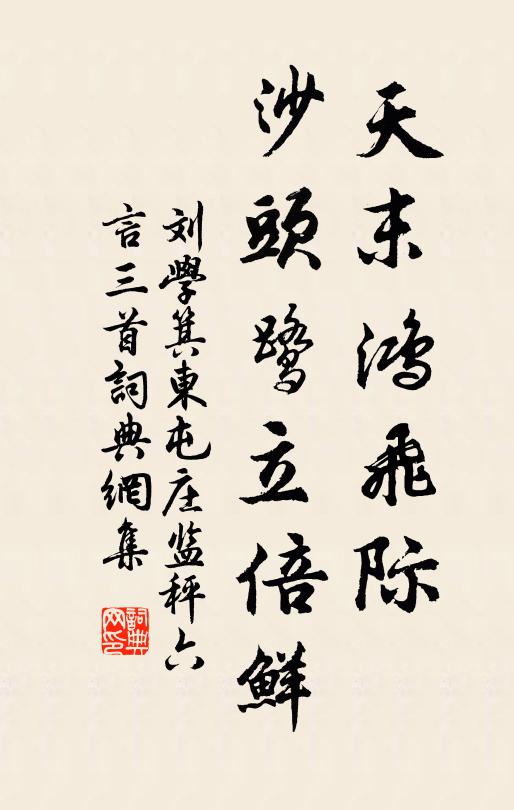 天末鴻飛际
沙頭鹭立倍鮮
刘學箕東屯庄监秤六
言三首詞典網集
詞典网印